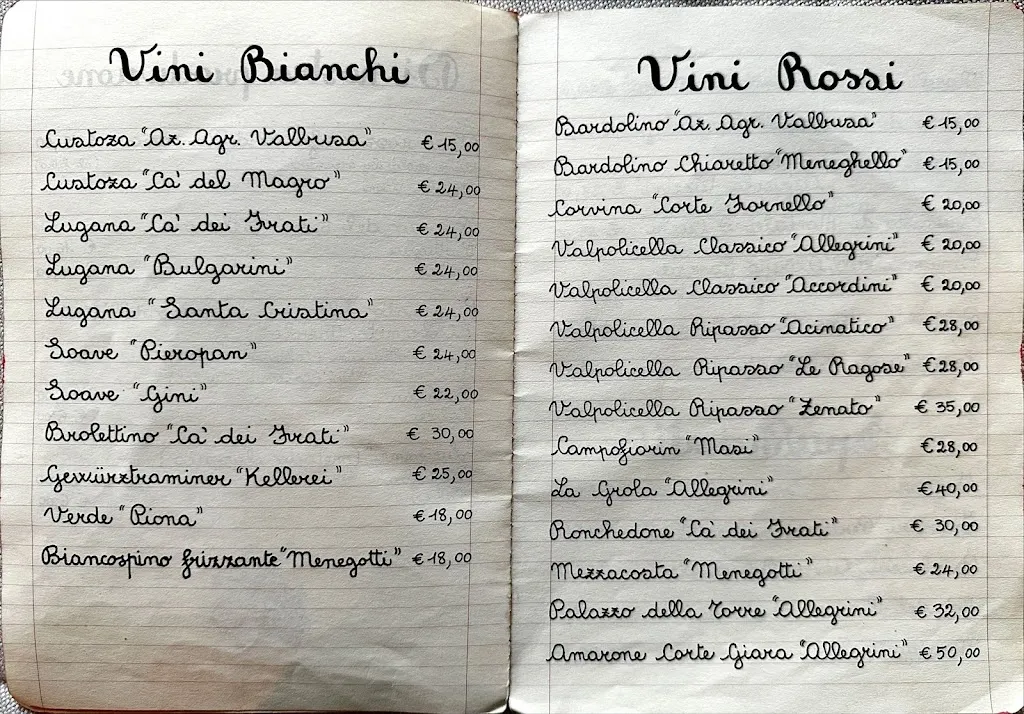 Vini Bianchi
Custoza "Az. Agr. Valbusa" € 15,00
Custoza "Ca' del Magro" € 24,00
Lugana "Ca' dei Frati" € 24,00
Lugana "Bulgarini" € 24,00
Lugana "Santa Cristina" € 24,00
Soave "Pieropan" € 24,00
Soave "Gini" € 22,00
Brolettino "Ca' dei Frati" € 30,00
Gewürztraminer "Kellerei" € 25,00
Verde "Piona" € 18,00
Biancospino frizzante "Menegotti" € 18,00
Vini Rossi
Bardolino "Az. Agr. Valbusa" € 15,00
Bardolino Chiaretto "Meneghello" € 15,00
Corvina "Corte Fornello" € 20,00
Valpolicella Classico "Allegrini" € 20,00
Valpolicella Classico "Accordini" € 20,00
Valpolicella Ripasso "Acinatico" € 28,00
Valpolicella Ripasso "Le Ragose" € 28,00
Valpolicella Ripasso "Zenato" € 35,00
Campofiorin "Masi" € 28,00
La Grola "Allegrini" € 40,00
Ronchedone "Ca' dei Frati" € 30,00
Mezzacosta "Menegotti" € 24,00
Palazzo della Torre "Allegrini" € 32,00
Amarone Corte Giara "Allegrini" € 50,00